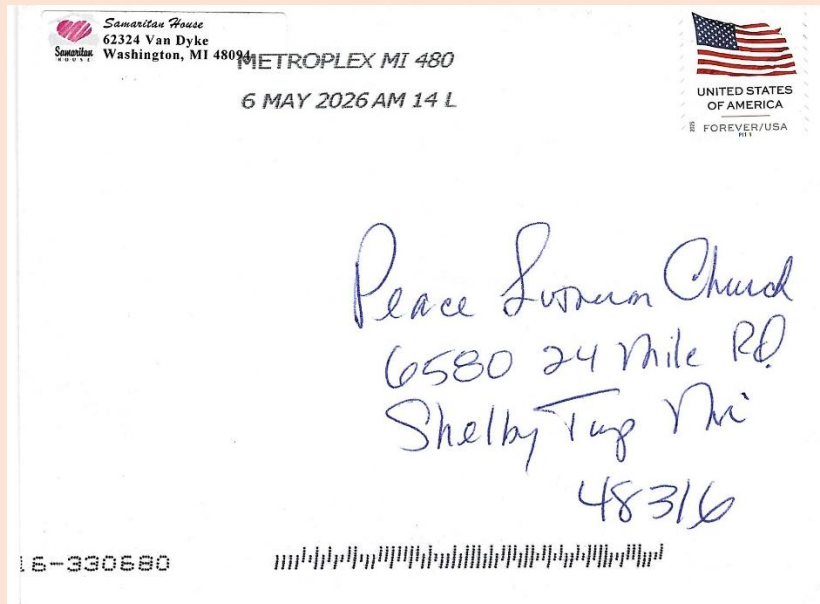 Samaritan House
62324 Van Dyke
Washington, MI 48094
Samaritan
HOUSE
METROPLEX MI 480
6 MAY 2026 AM 14 L
UNITED STATES
OF AMERICA
FOREVER/USA
2025
Peace Lutheran Church
6580 24 Mile RD
Shelby Twp Mi
48316
16-330680